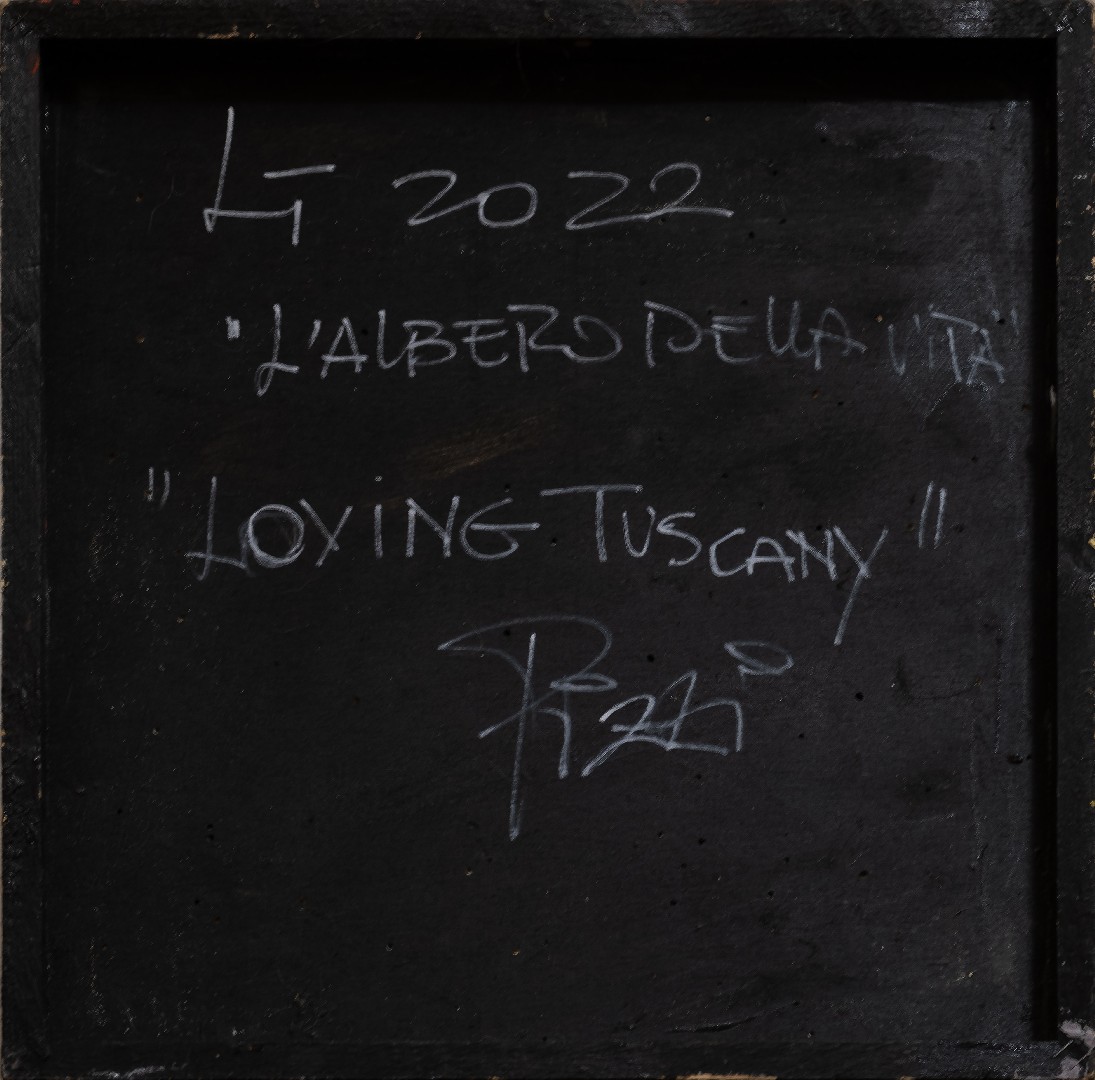 LT 2022
"L'ALBERO DELLA VITA"
"LOVING TUSCANY"